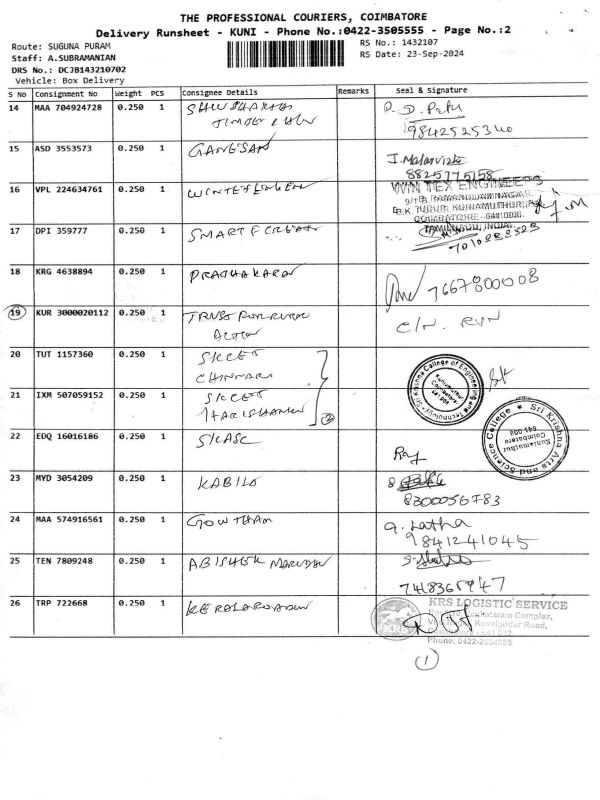 THE PROFESSIONAL COURIERS, COIMBATORE
Delivery Runsheet - KUNI - Phone No.:0422-3505555 - Page No.:2
Route: SUGUNA PURAM
RS No.: 1432107
Staff: A.SUBRAMANIAN
RS Date: 23-Sep-2024
DRS No.: DCJB143210702
Vehicle: Box Delivery
S No Consignment No Weight PCS Consignee Details Remarks Seal & Signature
14 MAA 704924728 0.250 1
9842525340
15 ASD 3553573 0.250 1 GANESAN
8825775158
16 VPL 224634761 0.250 1
WIN TEX ENGINEERS
B.K. PUDUR, KUNIAMUTHUR,
COIMBATORE - 641 008.
TAMILNADU, INDIA
17 DPI 359777 0.250 1
18 KRG 4638894 0.250 1 PRABHAKARAN
7667800008
19 KUR 3000020112 0.250 1 TRUST FOR RURAL
ACTION
C/N. RVN
20 TUT 1157360 0.250 1 SKCET
Sri Krishna College of Engineering and Technology
Kuniamuthur
Coimbatore-
641 008
21 IXM 507059152 0.250 1 SKCET
2
Sri Krishna Arts and Science College
Kuniamuthur
Coimbatore
641 008
22 EDQ 16016186 0.250 1 SKASC
23 MYD 3054209 0.250 1 KABILA
8300056783
24 MAA 574916561 0.250 1 GOWTHAM
A. Latha
9841241045
25 TEN 7809248 0.250 1 ABISHEK
26 TRP 722668 0.250 1
KRS LOGISTIC SERVICE
Complex,
Kovaipudur Road,
Coimbatore - 641 042
Phone: 0422-2604085
1